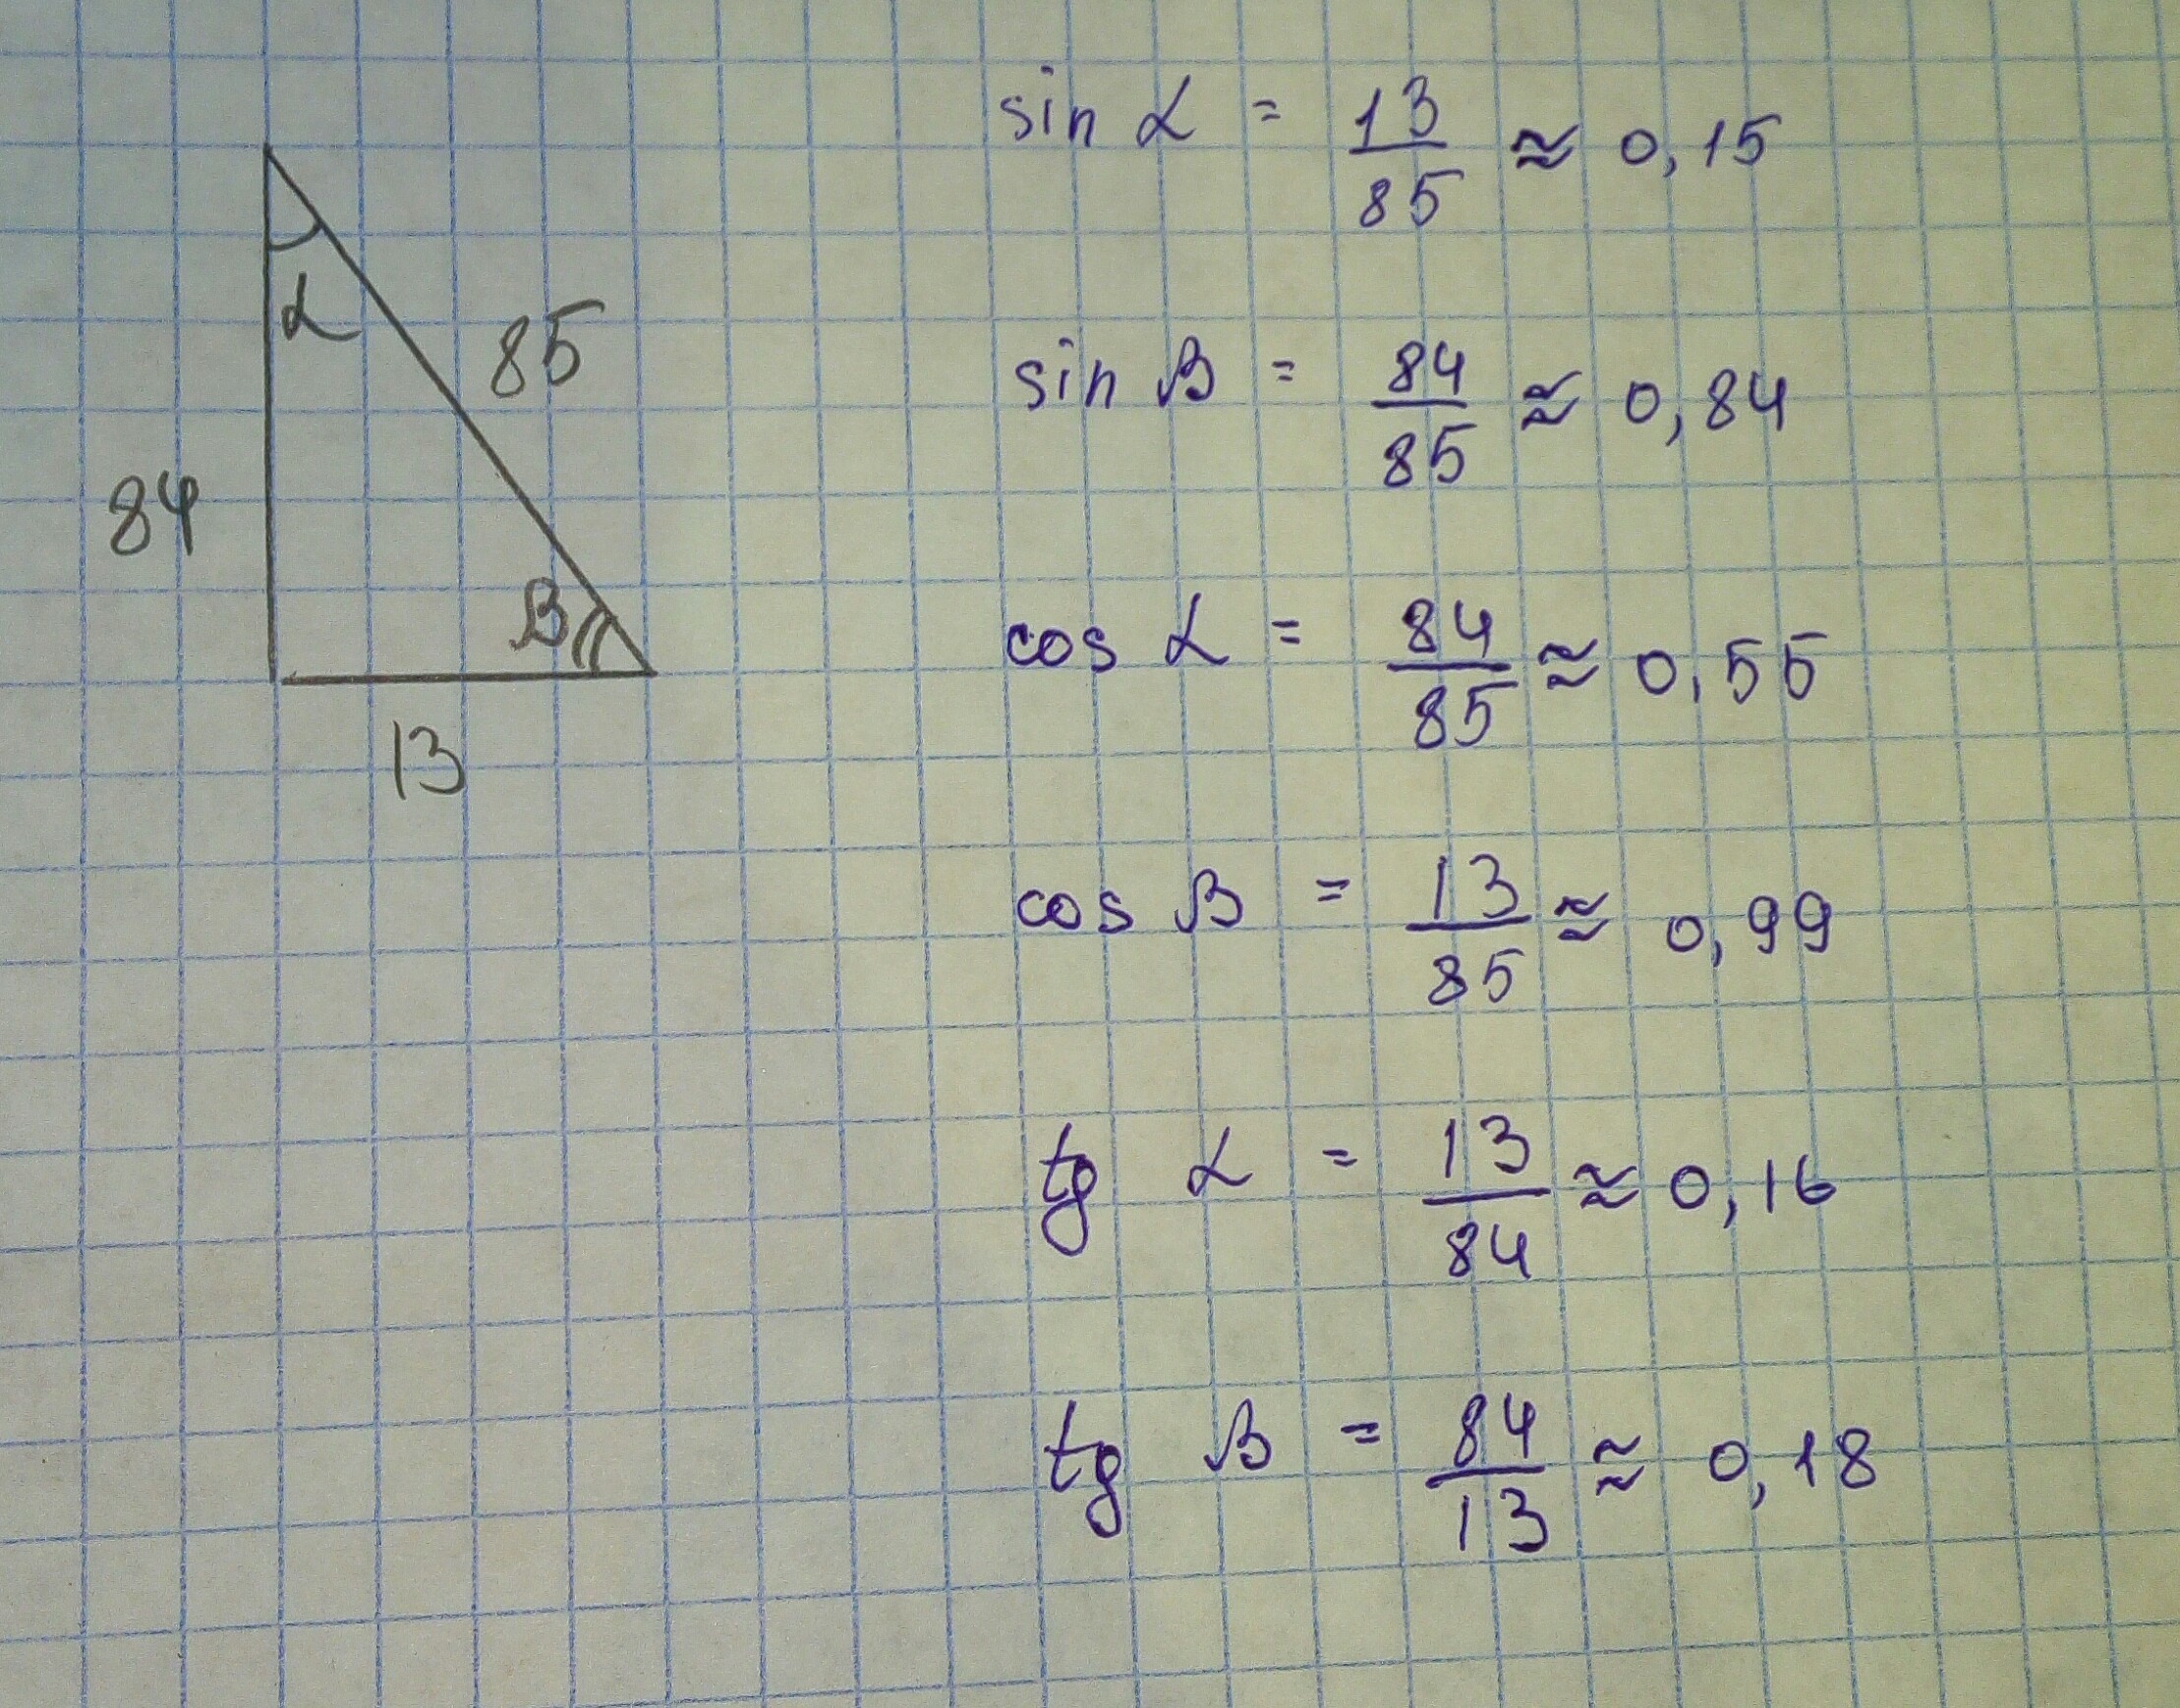 α
85
84
β
13
sin α = 13/85 ≈ 0,15
sin β = 84/85 ≈ 0,84
cos α = 84/85 ≈ 0,55
cos β = 13/85 ≈ 0,99
tg α = 13/84 ≈ 0,16
tg β = 84/13 ≈ 0,18